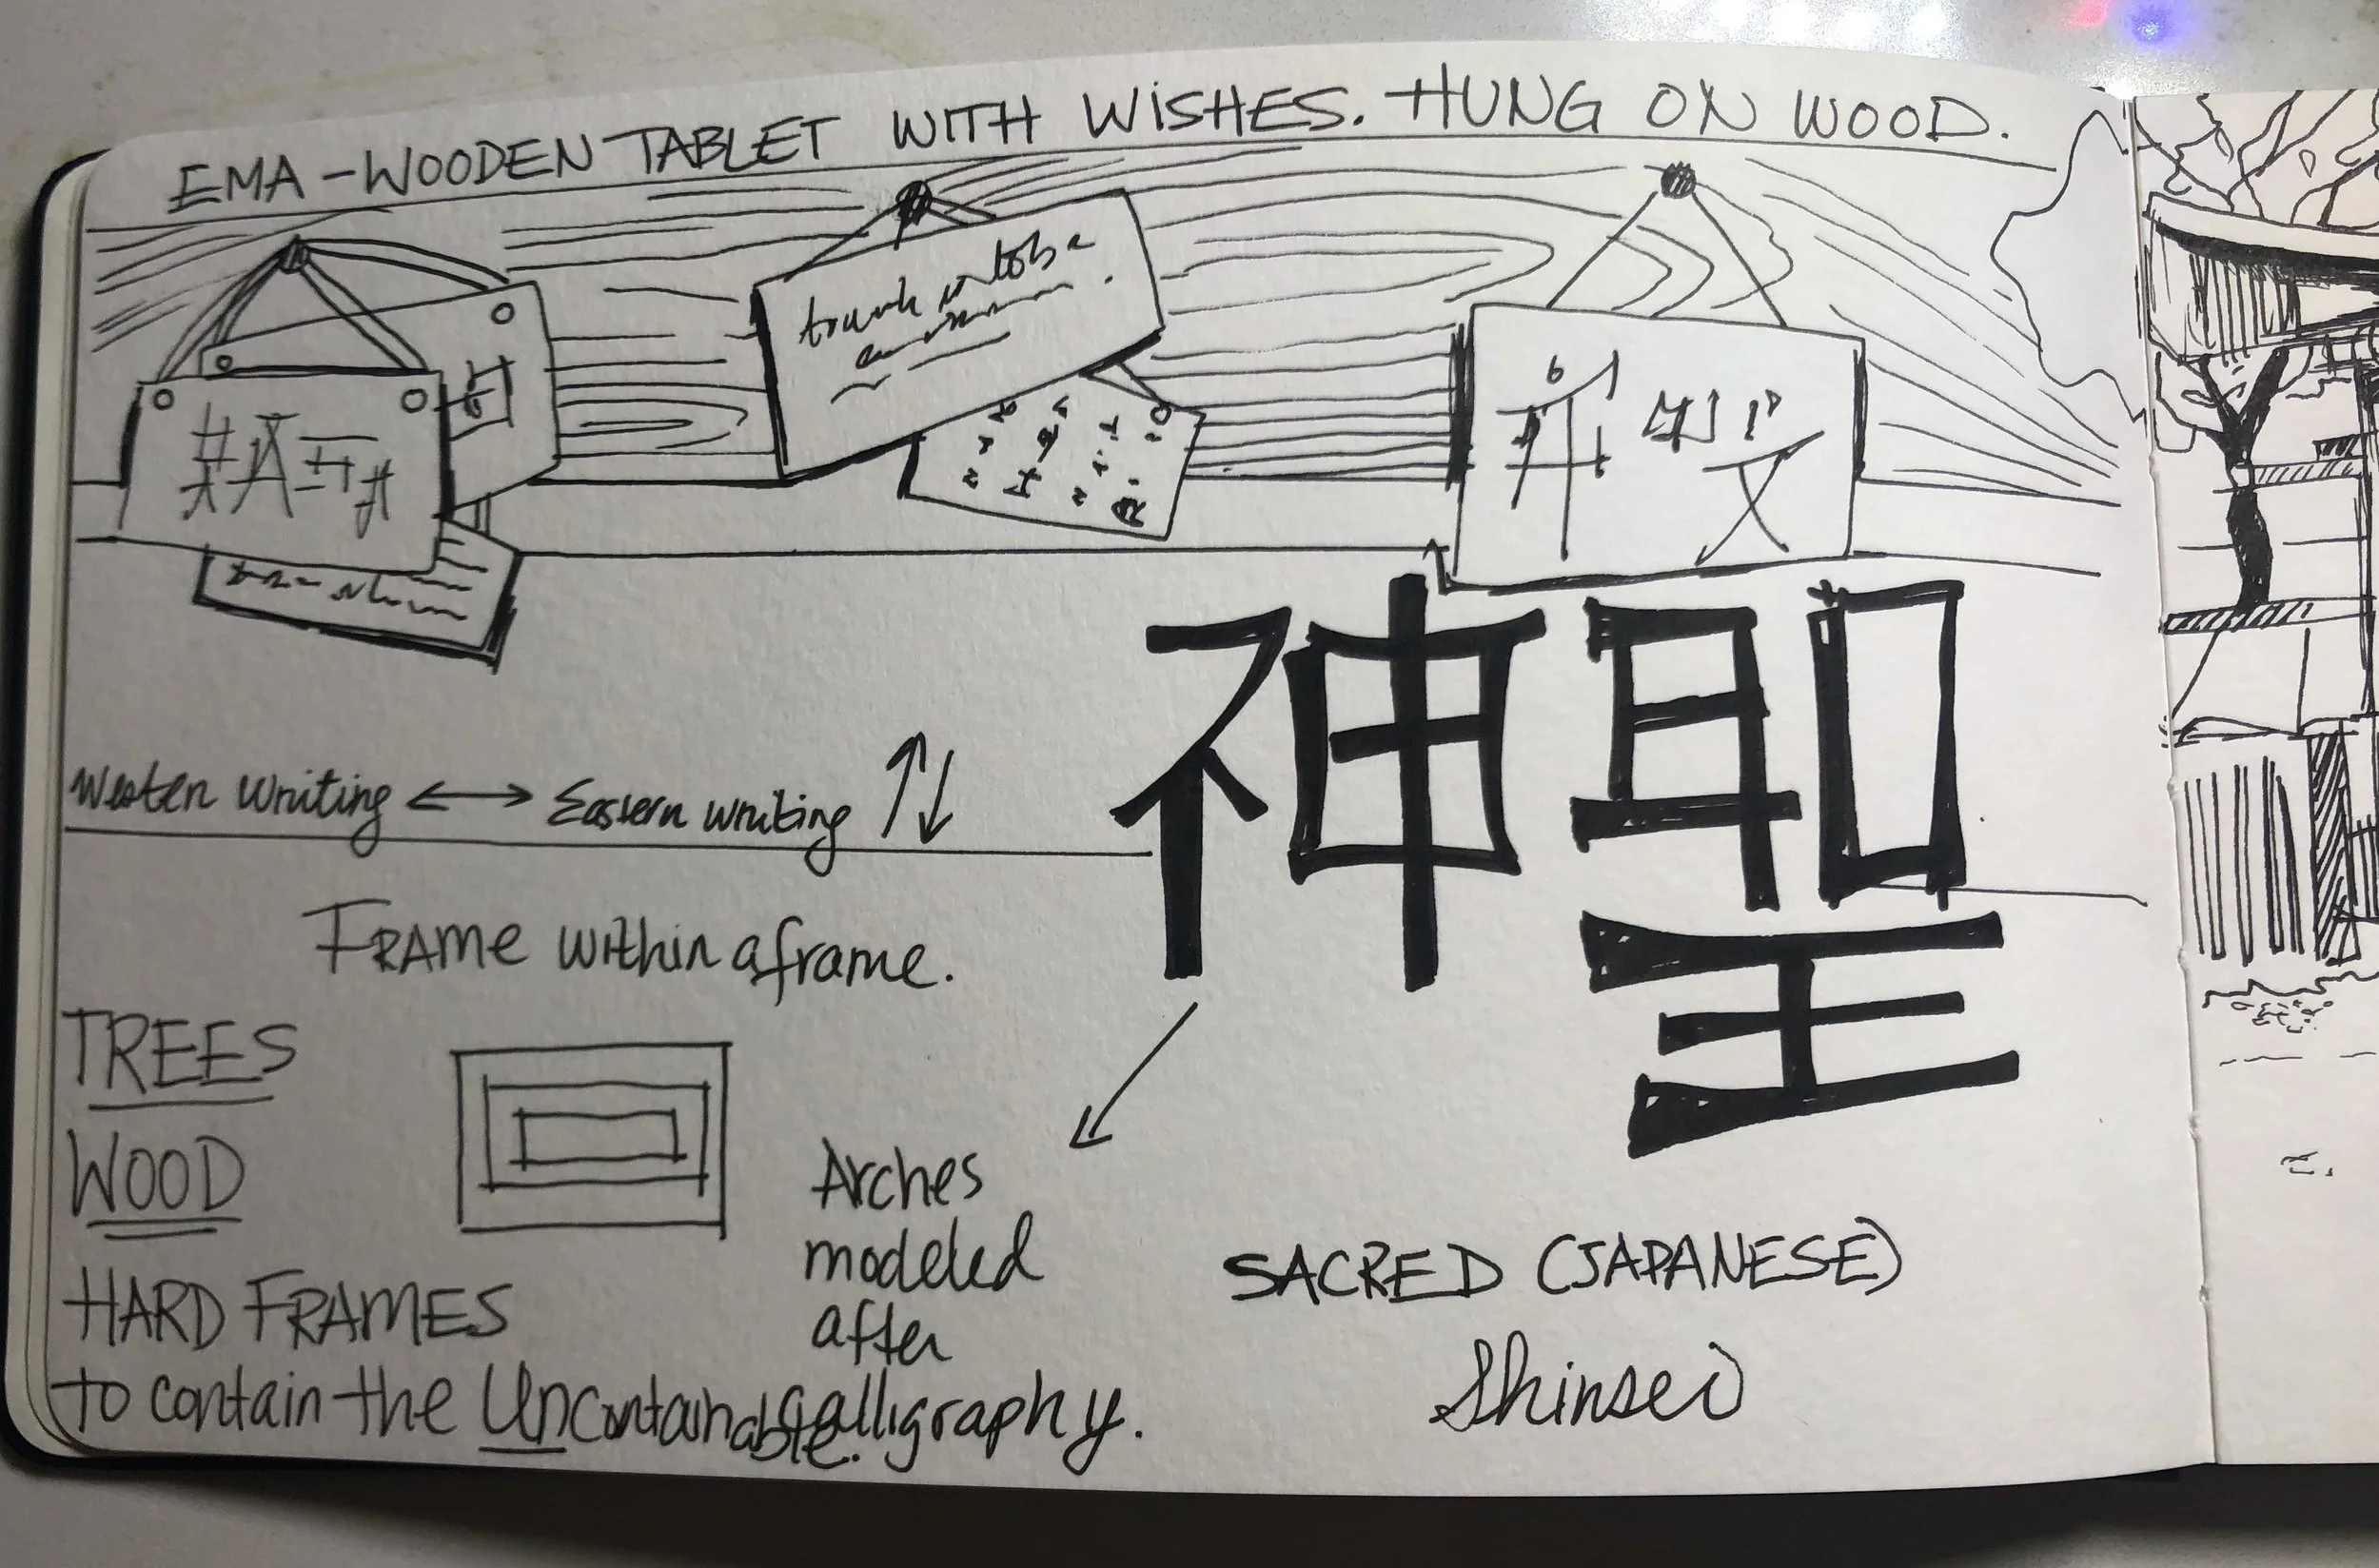 EMA - WOODEN TABLET WITH WISHES. HUNG ON WOOD.
神聖
Westen writing ↔ Eastern writing ↑↓
FRAME within a frame.
TREES
WOOD
HARD FRAMES
to contain the Uncontainable.
Arches
modeled
after
Calligraphy.
SACRED (JAPANESE)
Shinsei